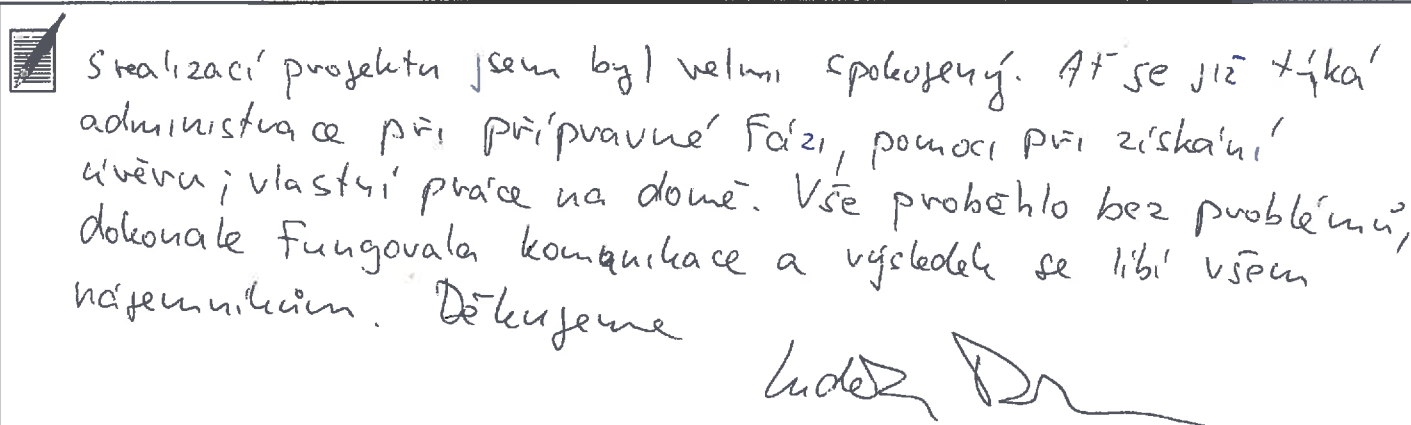 S realizací projektu jsem byl velmi spokojený. Ať se již týká
administrace při přípravné fázi, pomoci při získání
úvěru i vlastní práce na domě. Vše proběhlo bez problémů,
dokonale fungovala komunikace a výsledek se líbí všem
nájemníkům. Děkujeme
Luděk